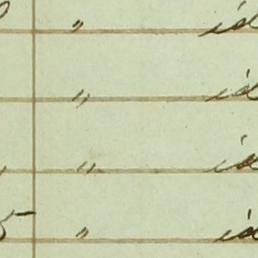 " id
" id
" id
5 " id